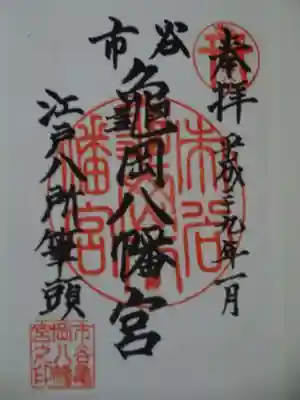 奉拝
平成廿九年一月
市谷
龜岡八幡宮
江戸八所筆頭
市谷
幡宮
市谷亀
岡八幡
宮之印